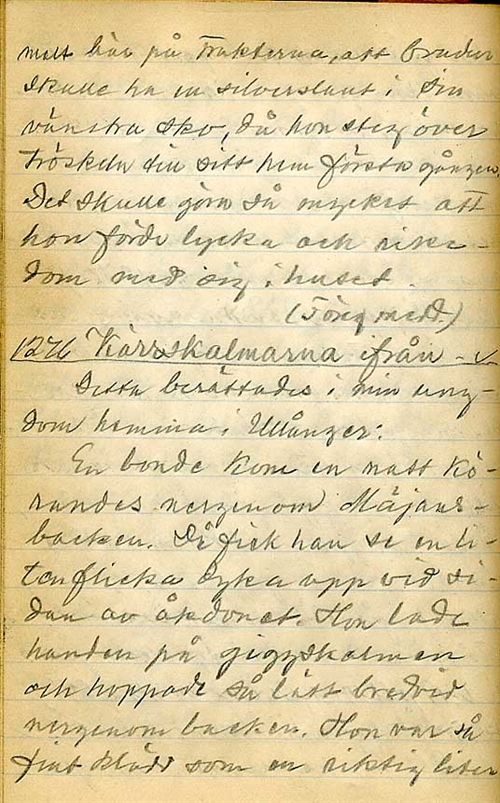 malt här på trakterna, att bruden
skulle ha en silverslant i sin
vänstra sko, då hon steg över
tröskeln till sitt hem första gången.
Det skulle göra så mycket att
hon förde lycka och rike-
dom med sig i huset.
(Föreg. medd.)
1276 Kärrskalmarna ifrån -
Detta berättades i min ung-
dom hemma i Ullånger:
En bonde kom en natt kö-
randes nergenom Mäjans-
backen. Då fick han se en li-
ten flicka dyka upp vid si-
dan av åkdonet. Hon lade
handen på giggskalmen
och hoppade så lätt bredvid
nergenom backen. Hon var så
fint klädd som en riktig liten